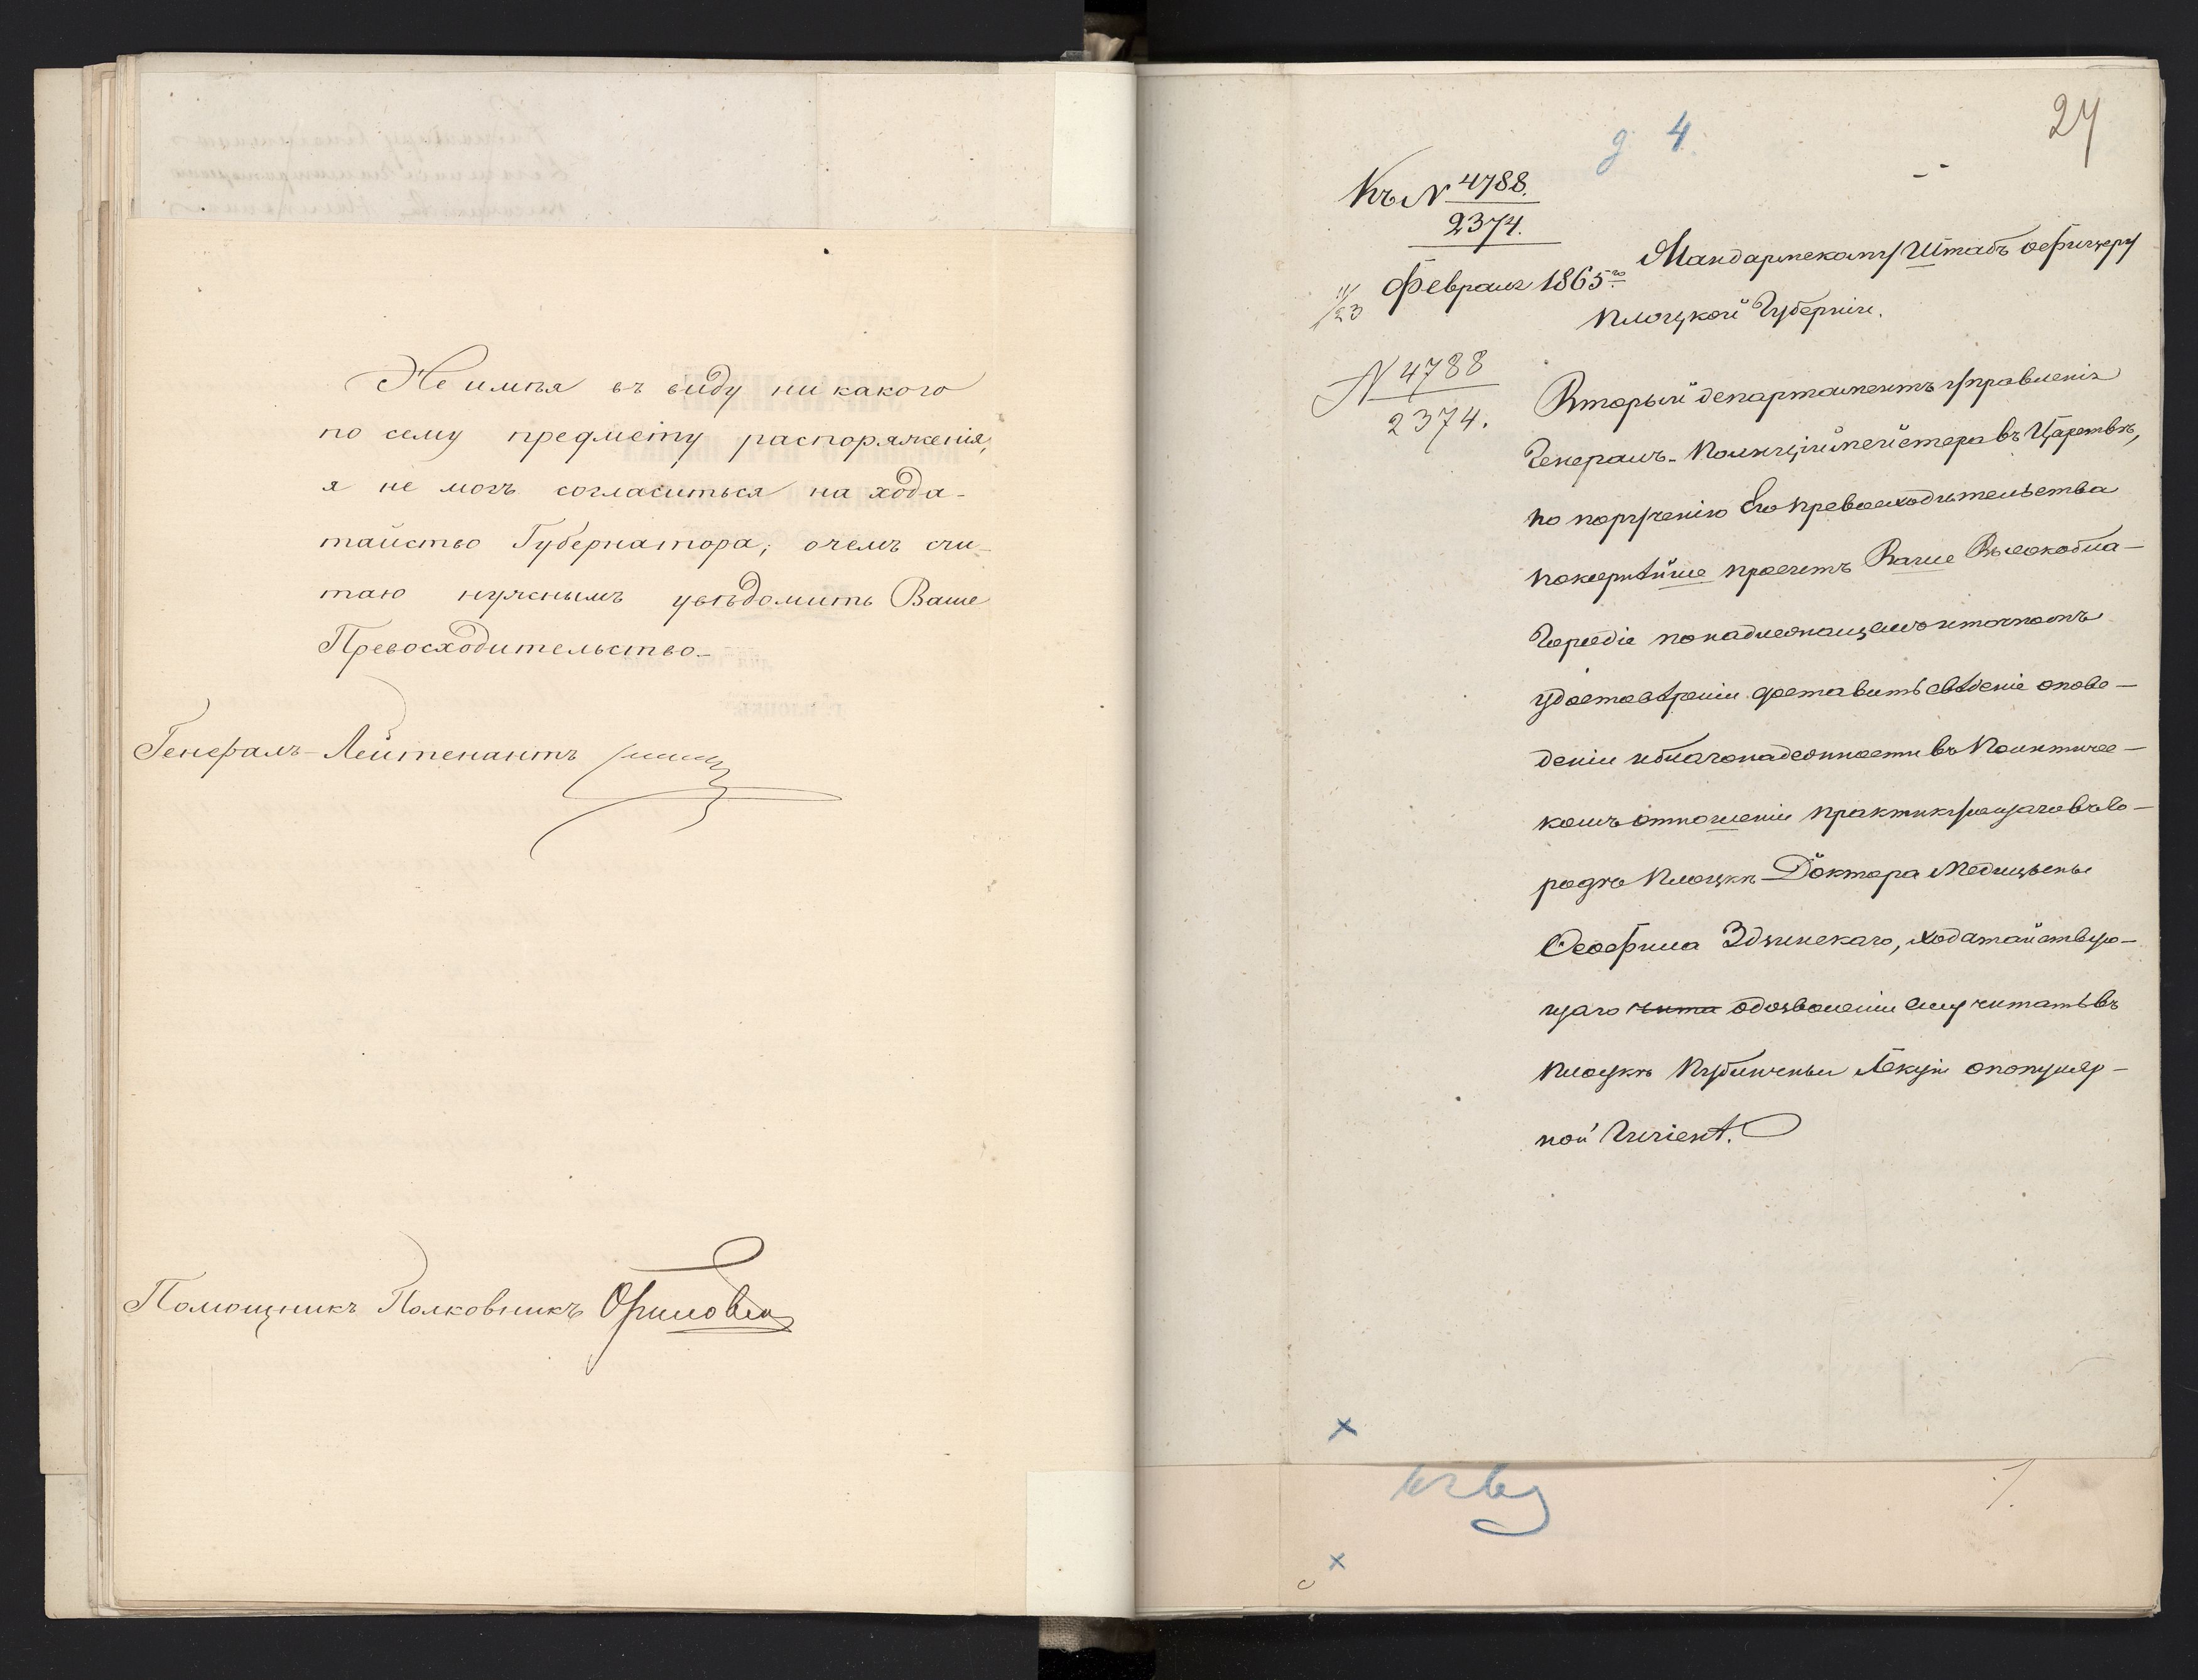 Не имѣя въ виду никакого
по сему предмету распоряженія,
я не могъ согласиться на хода-
тайство Губернатора; о чемъ счи-
таю нужнымъ увѣдомить Ваше
Превосходительство.
Генералъ-Лейтенантъ
Помощникъ Полковникъ
24
д 4.
Къ № 4788.
2374.
11/23 Февраля 1865 го
Жандармскому Штабъ офицеру
Плоцкой Губерніи.
№ 4788
2374.
Вторый департаментъ управленія
Генералъ-Полиціймейстера въ Царствѣ,
по порученію Его Превосходительства
покорнѣйше проситъ Ваше Высокобла-
городіе по надлежащемъ и точномъ
удостовѣреніи доставить свѣдѣніе о пове-
деніи и благонадежности въ Политичес-
комъ отношеніи практикующаго въ го-
родѣ Плоцкѣ Доктора Медицыны
Ѳеофила Здзинскаго, ходатайствую-
щаго чита о дозволеніи ему читать въ
Плоцкѣ Публичныя Лекціи о популяр-
ной Гигіенѣ.